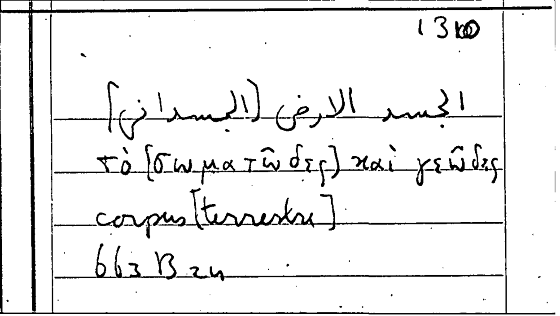 الجسد الارضى (الجسدانى)
τὸ [σωματῶδες] καὶ γεῶδες
corpus [terrestre]
663 B 24